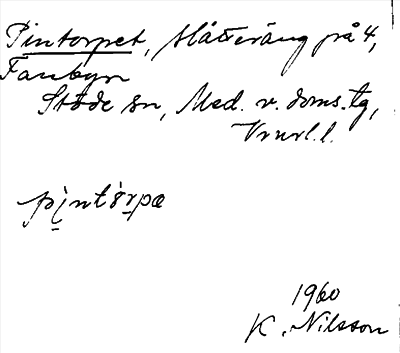 Pintorpet, slåtteräng på 4,
Fanbyn
Stöde sn, Med. v. doms. tg,
Vnrl. l.
pintårpæ
1960
K. Nilsson